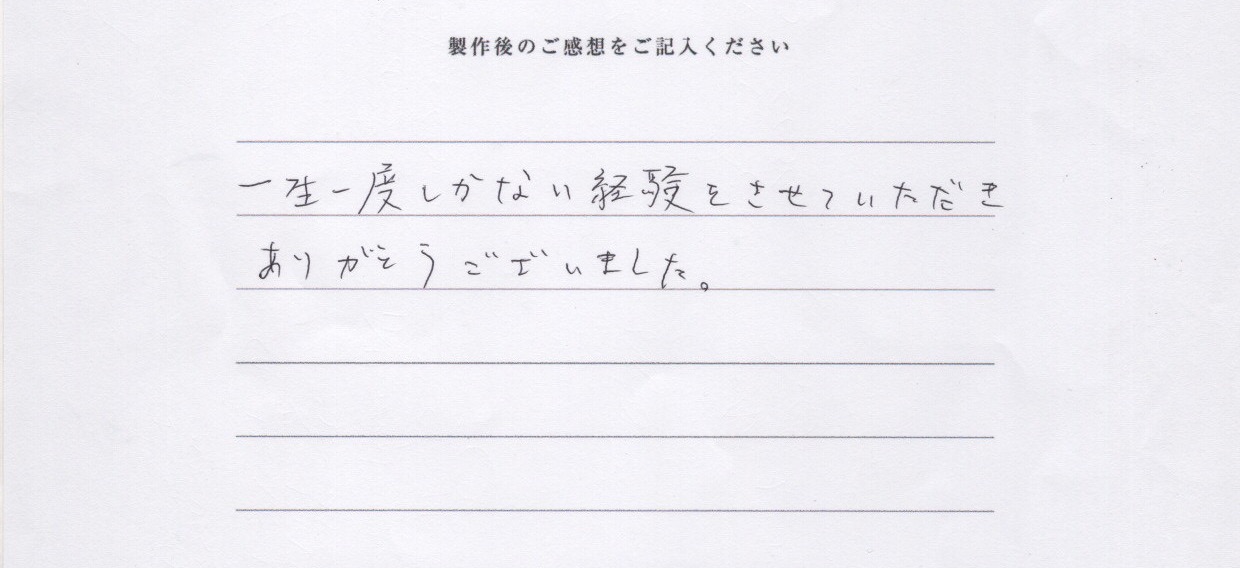 製作後のご感想をご記入ください
一生一度しかない経験をさせていただき
ありがとうございました。